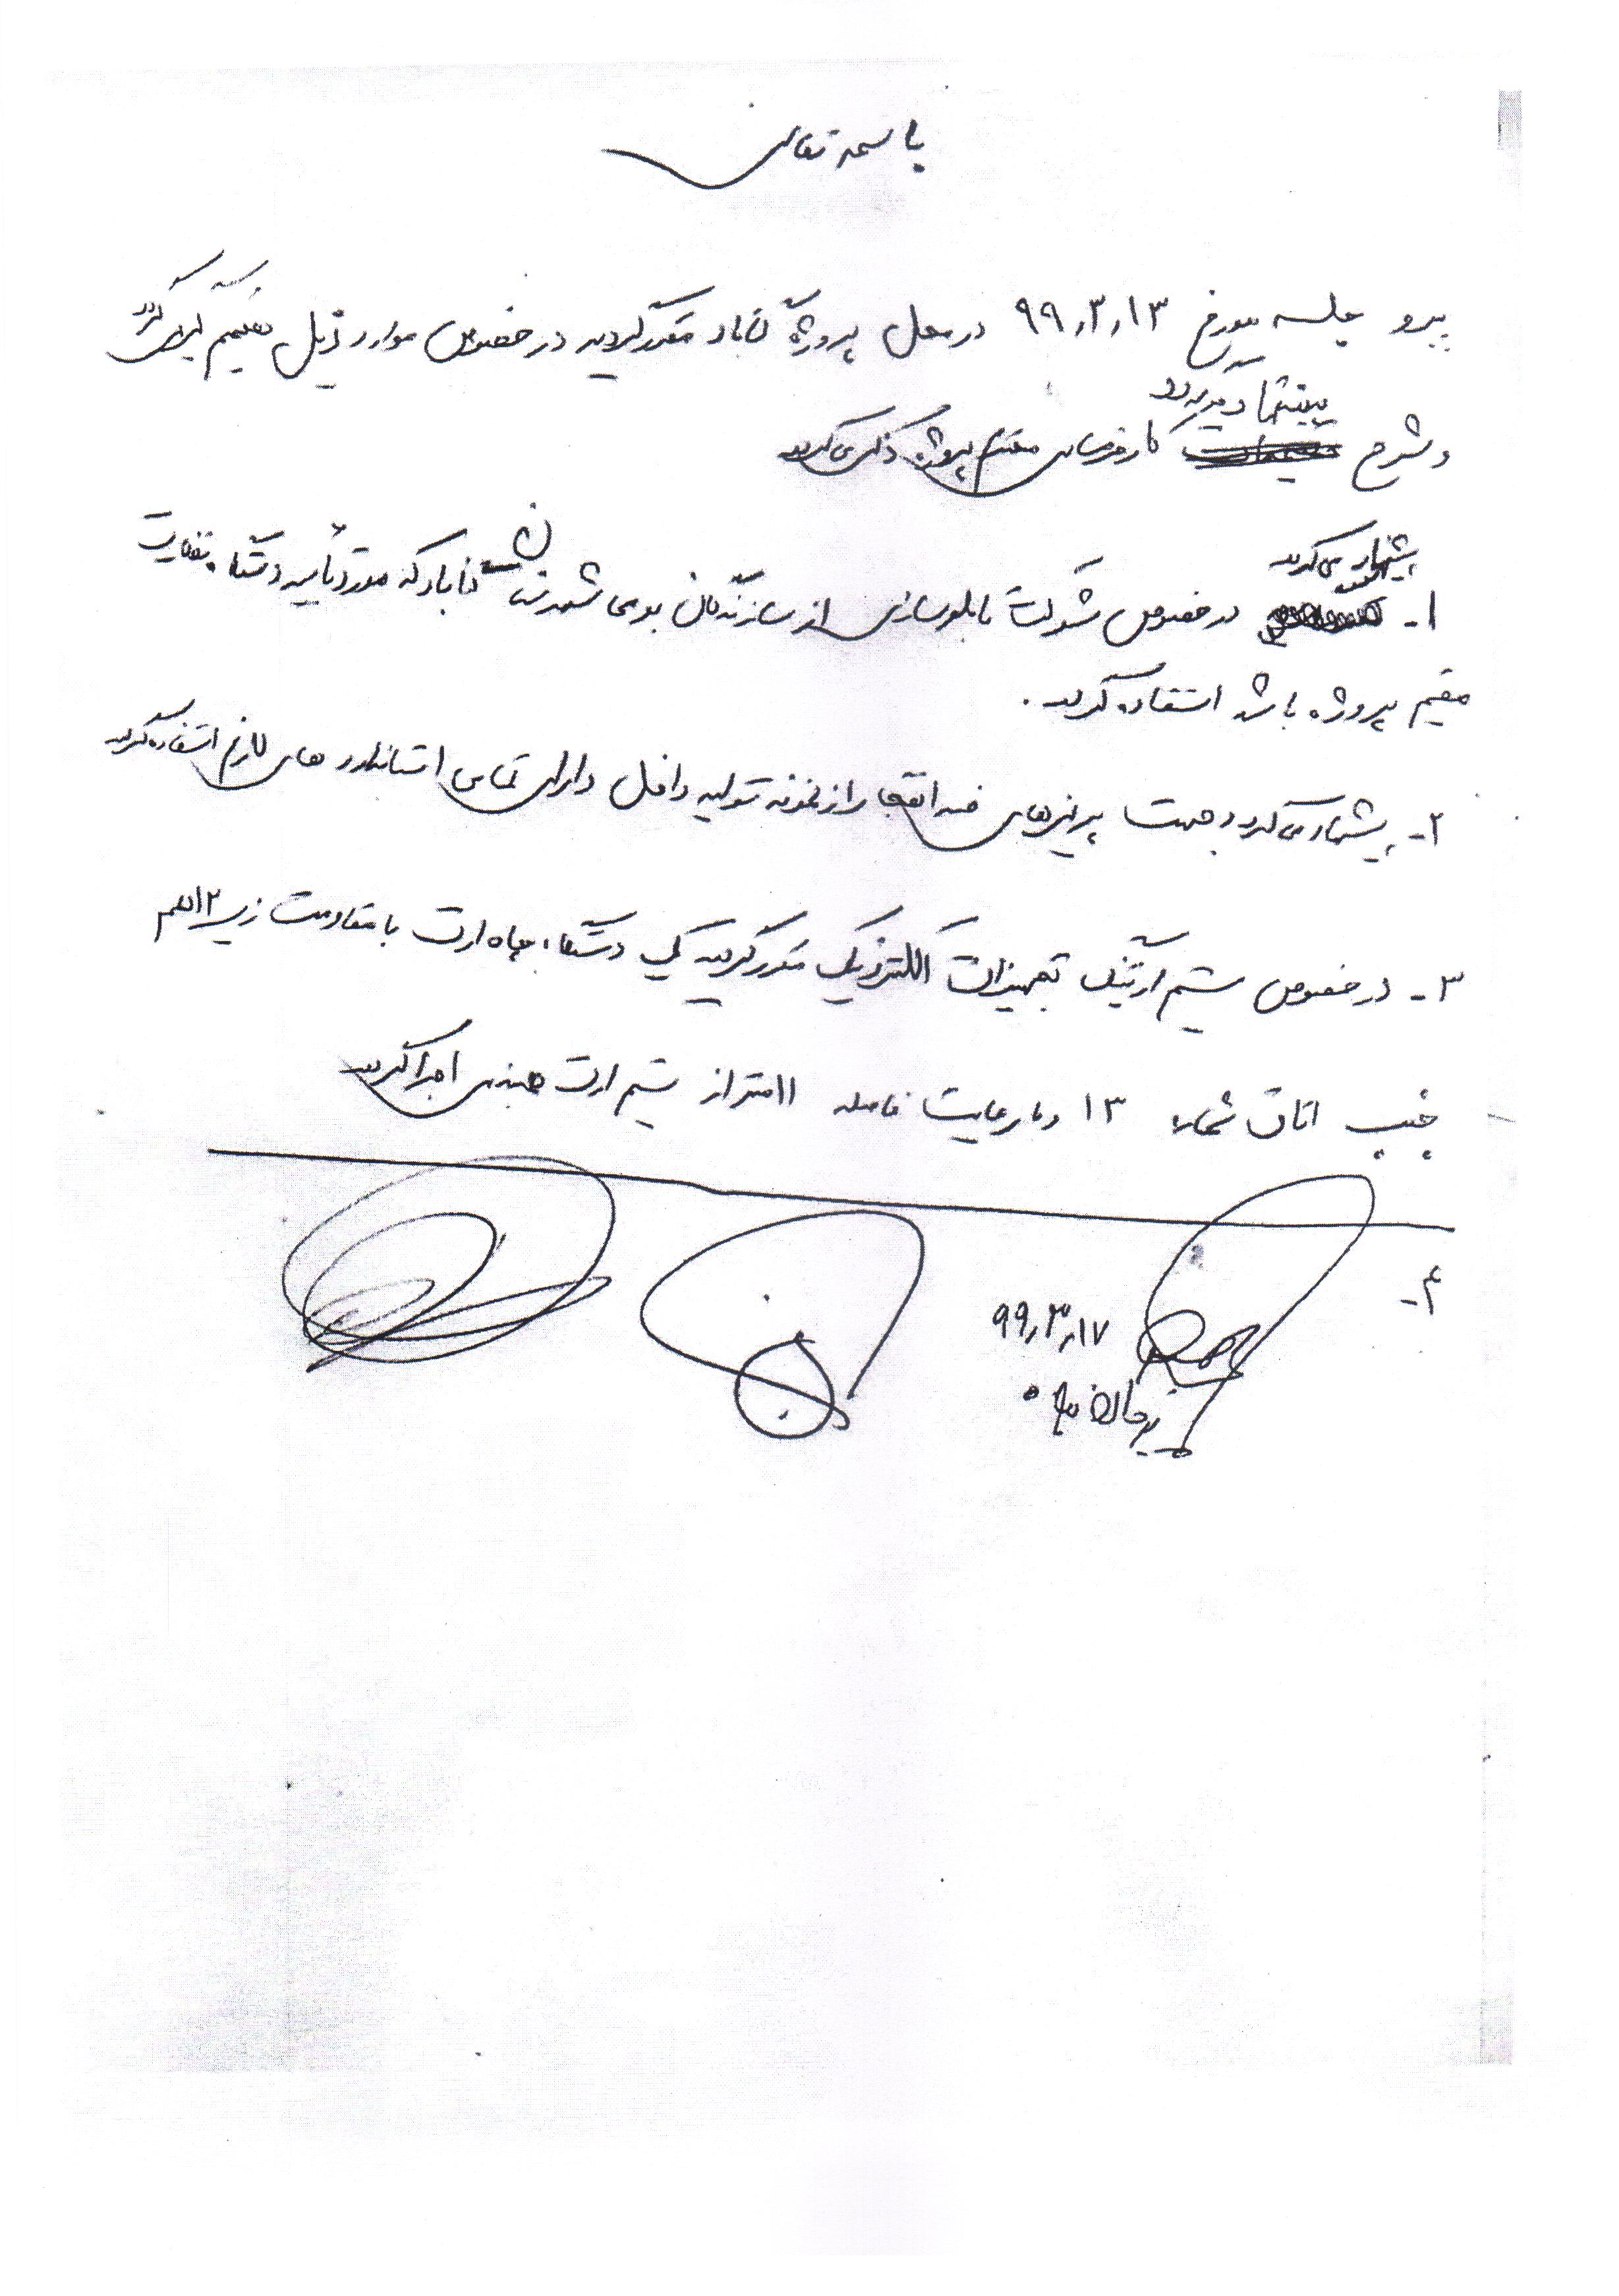 باسمه تعالی
پیرو جلسه مورخ ۹۹,۳,۱۳ در محل پروژه گناباد مقرر گردید در خصوص موارد ذیل تصمیم گیری گردد
پیشنهاد گردد
و شرح کارفرمای محترم پروژه ذکر می گردد
پیشنهاد می گردد
۱- در خصوص شرکت تابلوسازی از سازندگان بومی شهرستان گناباد که مورد تأیید دستگاه نظارت
مقیم پروژه باشد استفاده گردد .
۲- پیشنهاد می گردد جهت پریزهای ضد انفجار از نمونه تولید داخل دارای تمامی استانداردهای لازم استفاده گردد
۳- در خصوص سیستم ارتینگ تجهیزات الکترونیک مقرر گردید یک دستگاه چاه ارت با مقاومت زیر ۲ اهم
جنب اتاق شماره ۱۳ و با رعایت فاصله ۱۱ متر از سیستم ارت همبندی اجرا گردد
۴-
۹۹,۳,۱۷